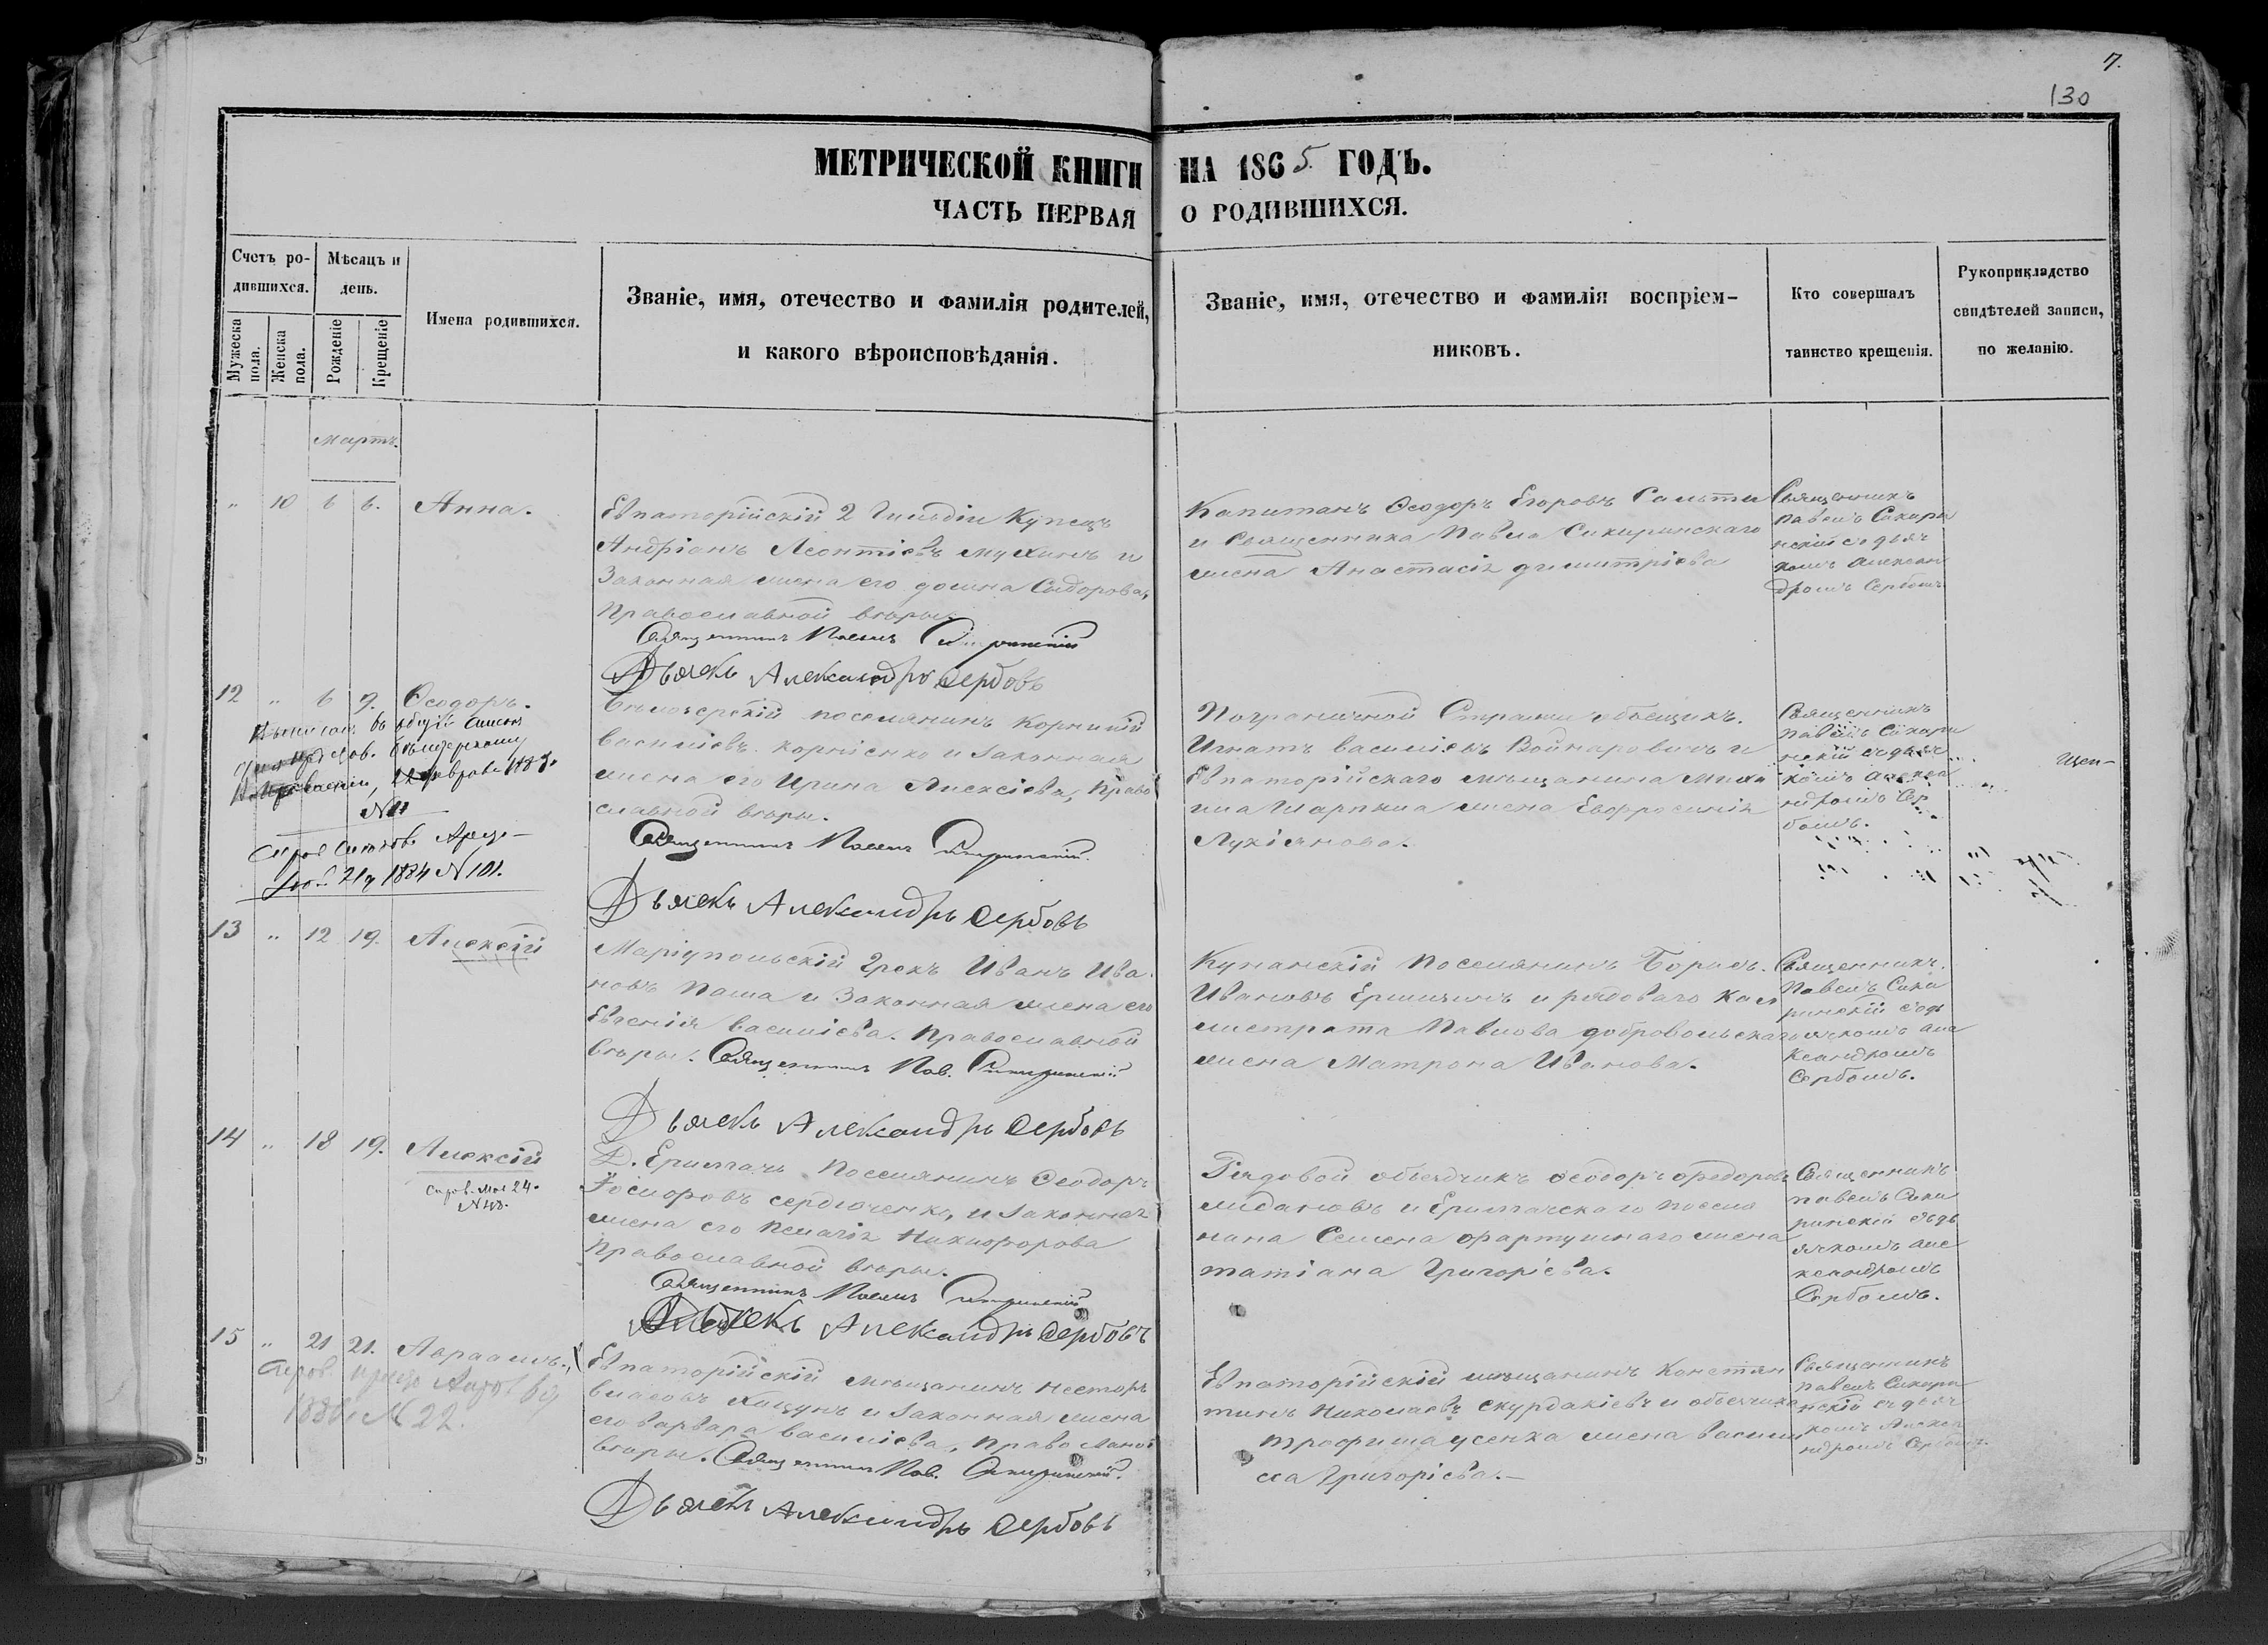 7.
130
МЕТРИЧЕСКОЙ КНИГИ НА 1865 ГОДЪ.
ЧАСТЬ ПЕРВАЯ О РОДИВШИХСЯ.
Счетъ ро-
дившихся.
Мужеска пола.
Женска пола.
Мѣсяцъ и
день.
Рожденіе
Крещеніе
Имена родившихся.
Званіе, имя, отечество и фамилія родителей,
и какого вѣроисповѣданія.
Званіе, имя, отечество и фамилія воспріем-
никовъ.
Кто совершалъ
таинство крещенія.
Рукоприкладство
свидѣтелей записи,
по желанію.
Мартъ.
" 10 6 6. Анна.
Евпаторійскій 2 Гильдіи Купецъ
Андріанъ Леонтіевъ Мухинъ и
Законная жена его Домна Сидорова,
Православной вѣры.
Священникъ Павелъ Сикиринскій
Дьячекъ Александръ Сербовъ
Капитанъ Ѳеодоръ Егоровъ
и Священника Павла Сикиринскаго
жена Анастасія Димитріева
Священникъ
Павелъ Сикири
нскій съ дьяч
комъ Алексан
дромъ Сербомъ
12 " 6 7. Ѳеодоръ.
22 Февраля
Справ.
21 1884 № 101.
поселянинъ Корнилій
Василіевъ Корніенко и Законная
жена его Ирина Алексіева, Право
славной вѣры.
Священникъ Павелъ Сикиринскій.
Дьячекъ Александръ Сербовъ
Пограничной Стражи объещикъ
Игнатъ Василіевъ Войнаровичъ и
Евпаторійскаго мѣщанина Миха
ила жена Евфросинія
Лукіянова.
Священникъ
Павелъ Сикири
нскій съ дьяч
комъ Алекса
ндромъ Сер
бомъ.
13 " 12 19. Алексій
Маріупольскій Грекъ Иванъ Ива
новъ Паша и Законная жена его
Евгенія Василіева. Православной
вѣры. Священникъ Пав. Сикиринскій
Дьячекъ Александръ Сербовъ
Поселянинъ Борисъ
Ивановъ и рядоваго Кал
листрата Павлова Добровольскаго
жена Матрона Иванова.
Священникъ
Павелъ Сики
ринскій съ дь
ячкомъ Але
ксандромъ
Сербомъ.
14 " 18 19. Алексій
Справ. Мая 24.
Д. Ермнгачъ Поселянинъ Ѳеодоръ
Сердюченко, и Законная
жена его Пелагія Никифорова
Православной вѣры.
Священникъ Павелъ Сикиринскій
Дьячекъ Александръ Сербовъ
Рядовой объездчикъ Ѳеодоръ Ѳеодоровъ
поселя
нина Семена жена
Татіана Григорієва.
Священникъ
Павелъ Сики
ринскій съ дь
ячкомъ Але
ксандромъ
Сербомъ.
15 " 21 21. Авраамъ.
Справ.
№ 22.
Евпаторійскій Мѣщанинъ Несторъ
Власовъ и Законная жена
его Варвара Василіева, Православной
вѣры. Священникъ Пав. Сикиринскій.
Дьячекъ Александръ Сербовъ
Евпаторійскій мѣщанинъ Констан
тинъ Николаевъ и объезчика
Трофима Усенка жена Васили
са Григоріева.—
Священникъ
Павелъ Сикири
нскій съ дьяч
комъ Алекса
ндромъ Сербомъ.